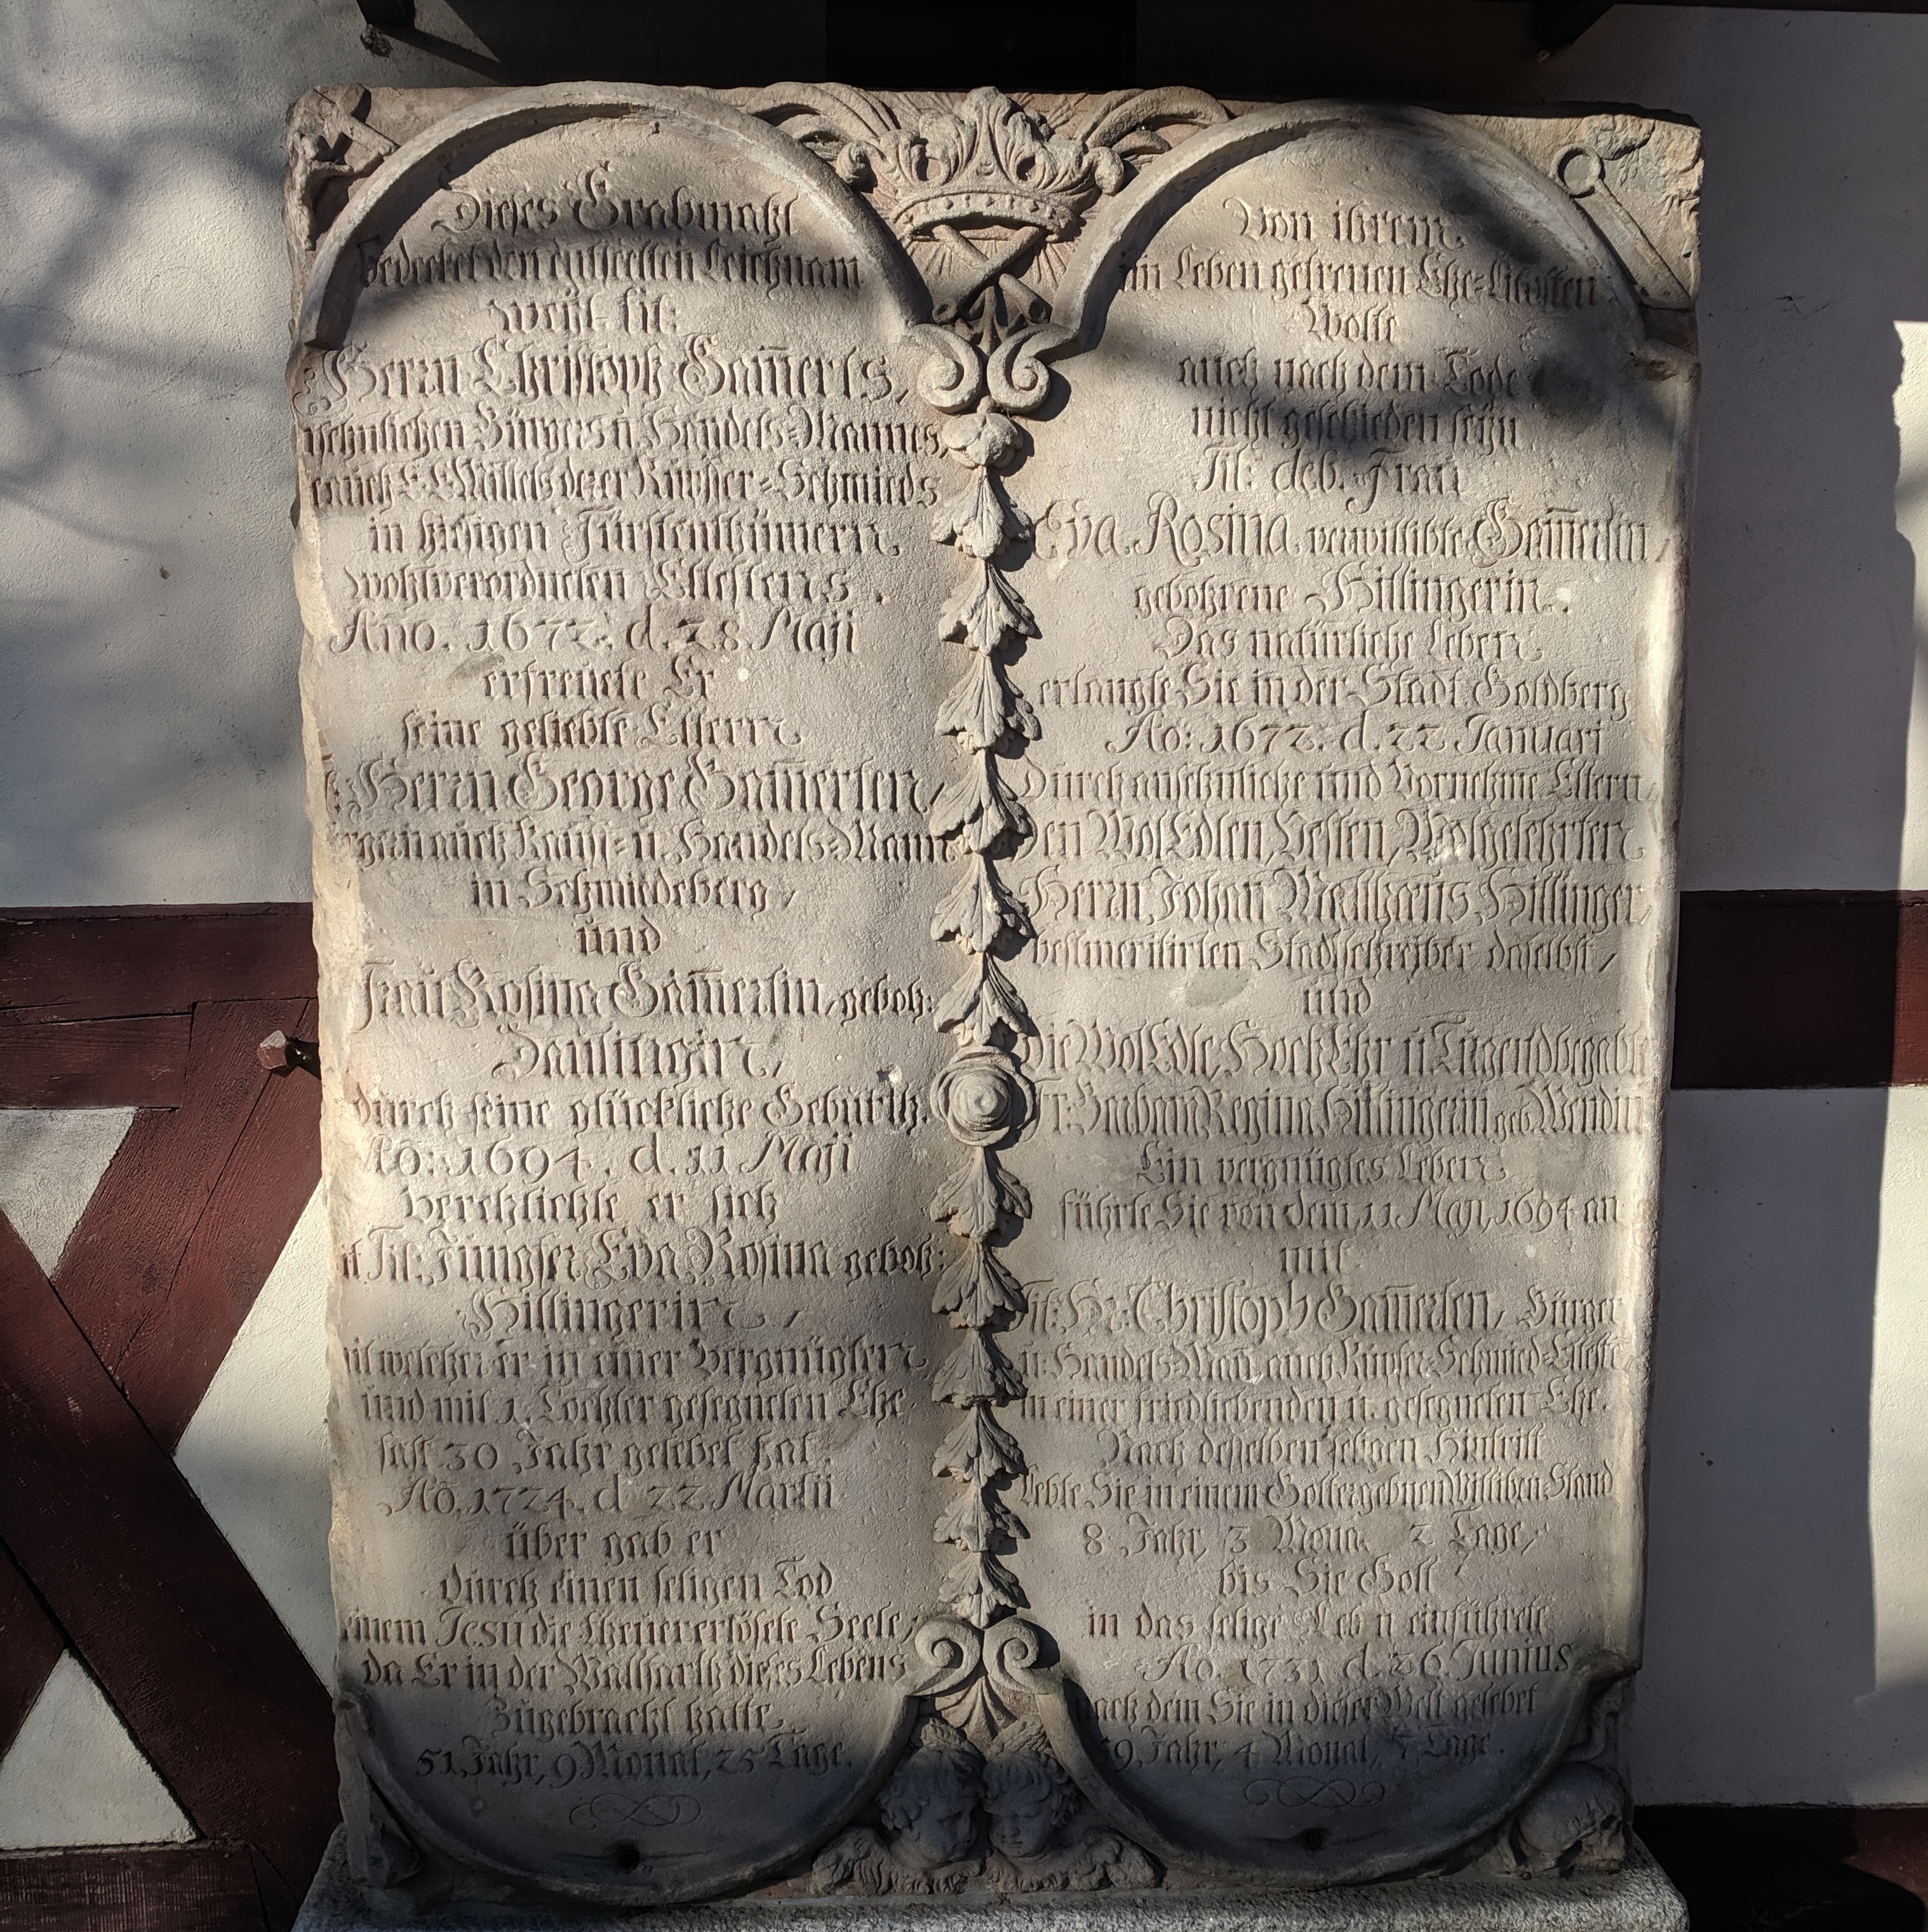 Dieses Grabmahl
bedecket den entseelten Leichnam
weÿl. tit:
Herrn Christoph Gam̄erts,
sehnlichen Bürgers ū Handels-Mannes,
auch E. E. Mittels derer Kupffer-Schmieds
in hiesigen Fürstenthümern
wohlverordneten Eltestens.
Año. 1672. d. 28 Maji
erfreuete Er
seine geliebte Eltern
Herrn George Gam̄erten,
auch Kauff- u. Handels-Mann
in Schmiedeberg,
und
Frau Rosina Gam̄ertin, geboh:
durch seine glückliche Geburth.
Ao: 1694. d. 11 Maji
verehlichte er sich
Tit: Jungfer Eva Rosina geboh:
Hillingerin,
mit welcher er in einer Vergnügten
und mit 1. Tochter gesegneten Ehe
fast 30 Jahr gelebet hat.
Ao. 1724. d 22 Martii
über gab er
durch einen seligen Tod
seinem Jesu die theuer erlösete Seele,
da Er in der Wallfarth dieses Lebens
Zugebracht hatte,
51. Jahr, 9 Monat, 25 Tage.
Von ihrem
im Leben getreuen Ehe-Liebsten
Wolte
auch nach dem Tode
nicht geschieden seÿn
Tit: deb. Frau
Eva Rosina verwittibte Gam̄ertin,
gebohrene Hillingerin.
Das natürliche Leben
erlangte Sie in der Stadt Goldberg
Ao: 1672. d. 22 Januari
Durch ansehnliche und Vornehme Eltern,
Den Wol Edlen, Vesten, Wolgelehrten
Herrn Johan Matthæus Hillinger,
bestmeritirten Stadtschreiber daselbst,
und
Die Wol Edle, Hoch Ehr u Tugendbegabte
Fr: Barbara Regina Hillingerin geb. Wendin
Ein vergnügtes Leben
führte Sie von dem 11 Maji 1694 an
mit
Tit: Hr: Christoph Gam̄erten, Bürger
u: Handels-Mañ auch Kupfer-Schmied-Elteste
in einer friedliebenden u. gesegneten Ehe.
Nach desselben seligen Hintritt
lebte Sie in einem Gottergebnen Wittiben-Stand
8 Jahr, 3 Mona 2 Tage,
bis Sie Gott
in das selige Leb n einführete
Ao. 1731 d. 26. Junius
nach dem Sie in dieser Welt gelebet
59. Jahr, 4 Monat, Tage.